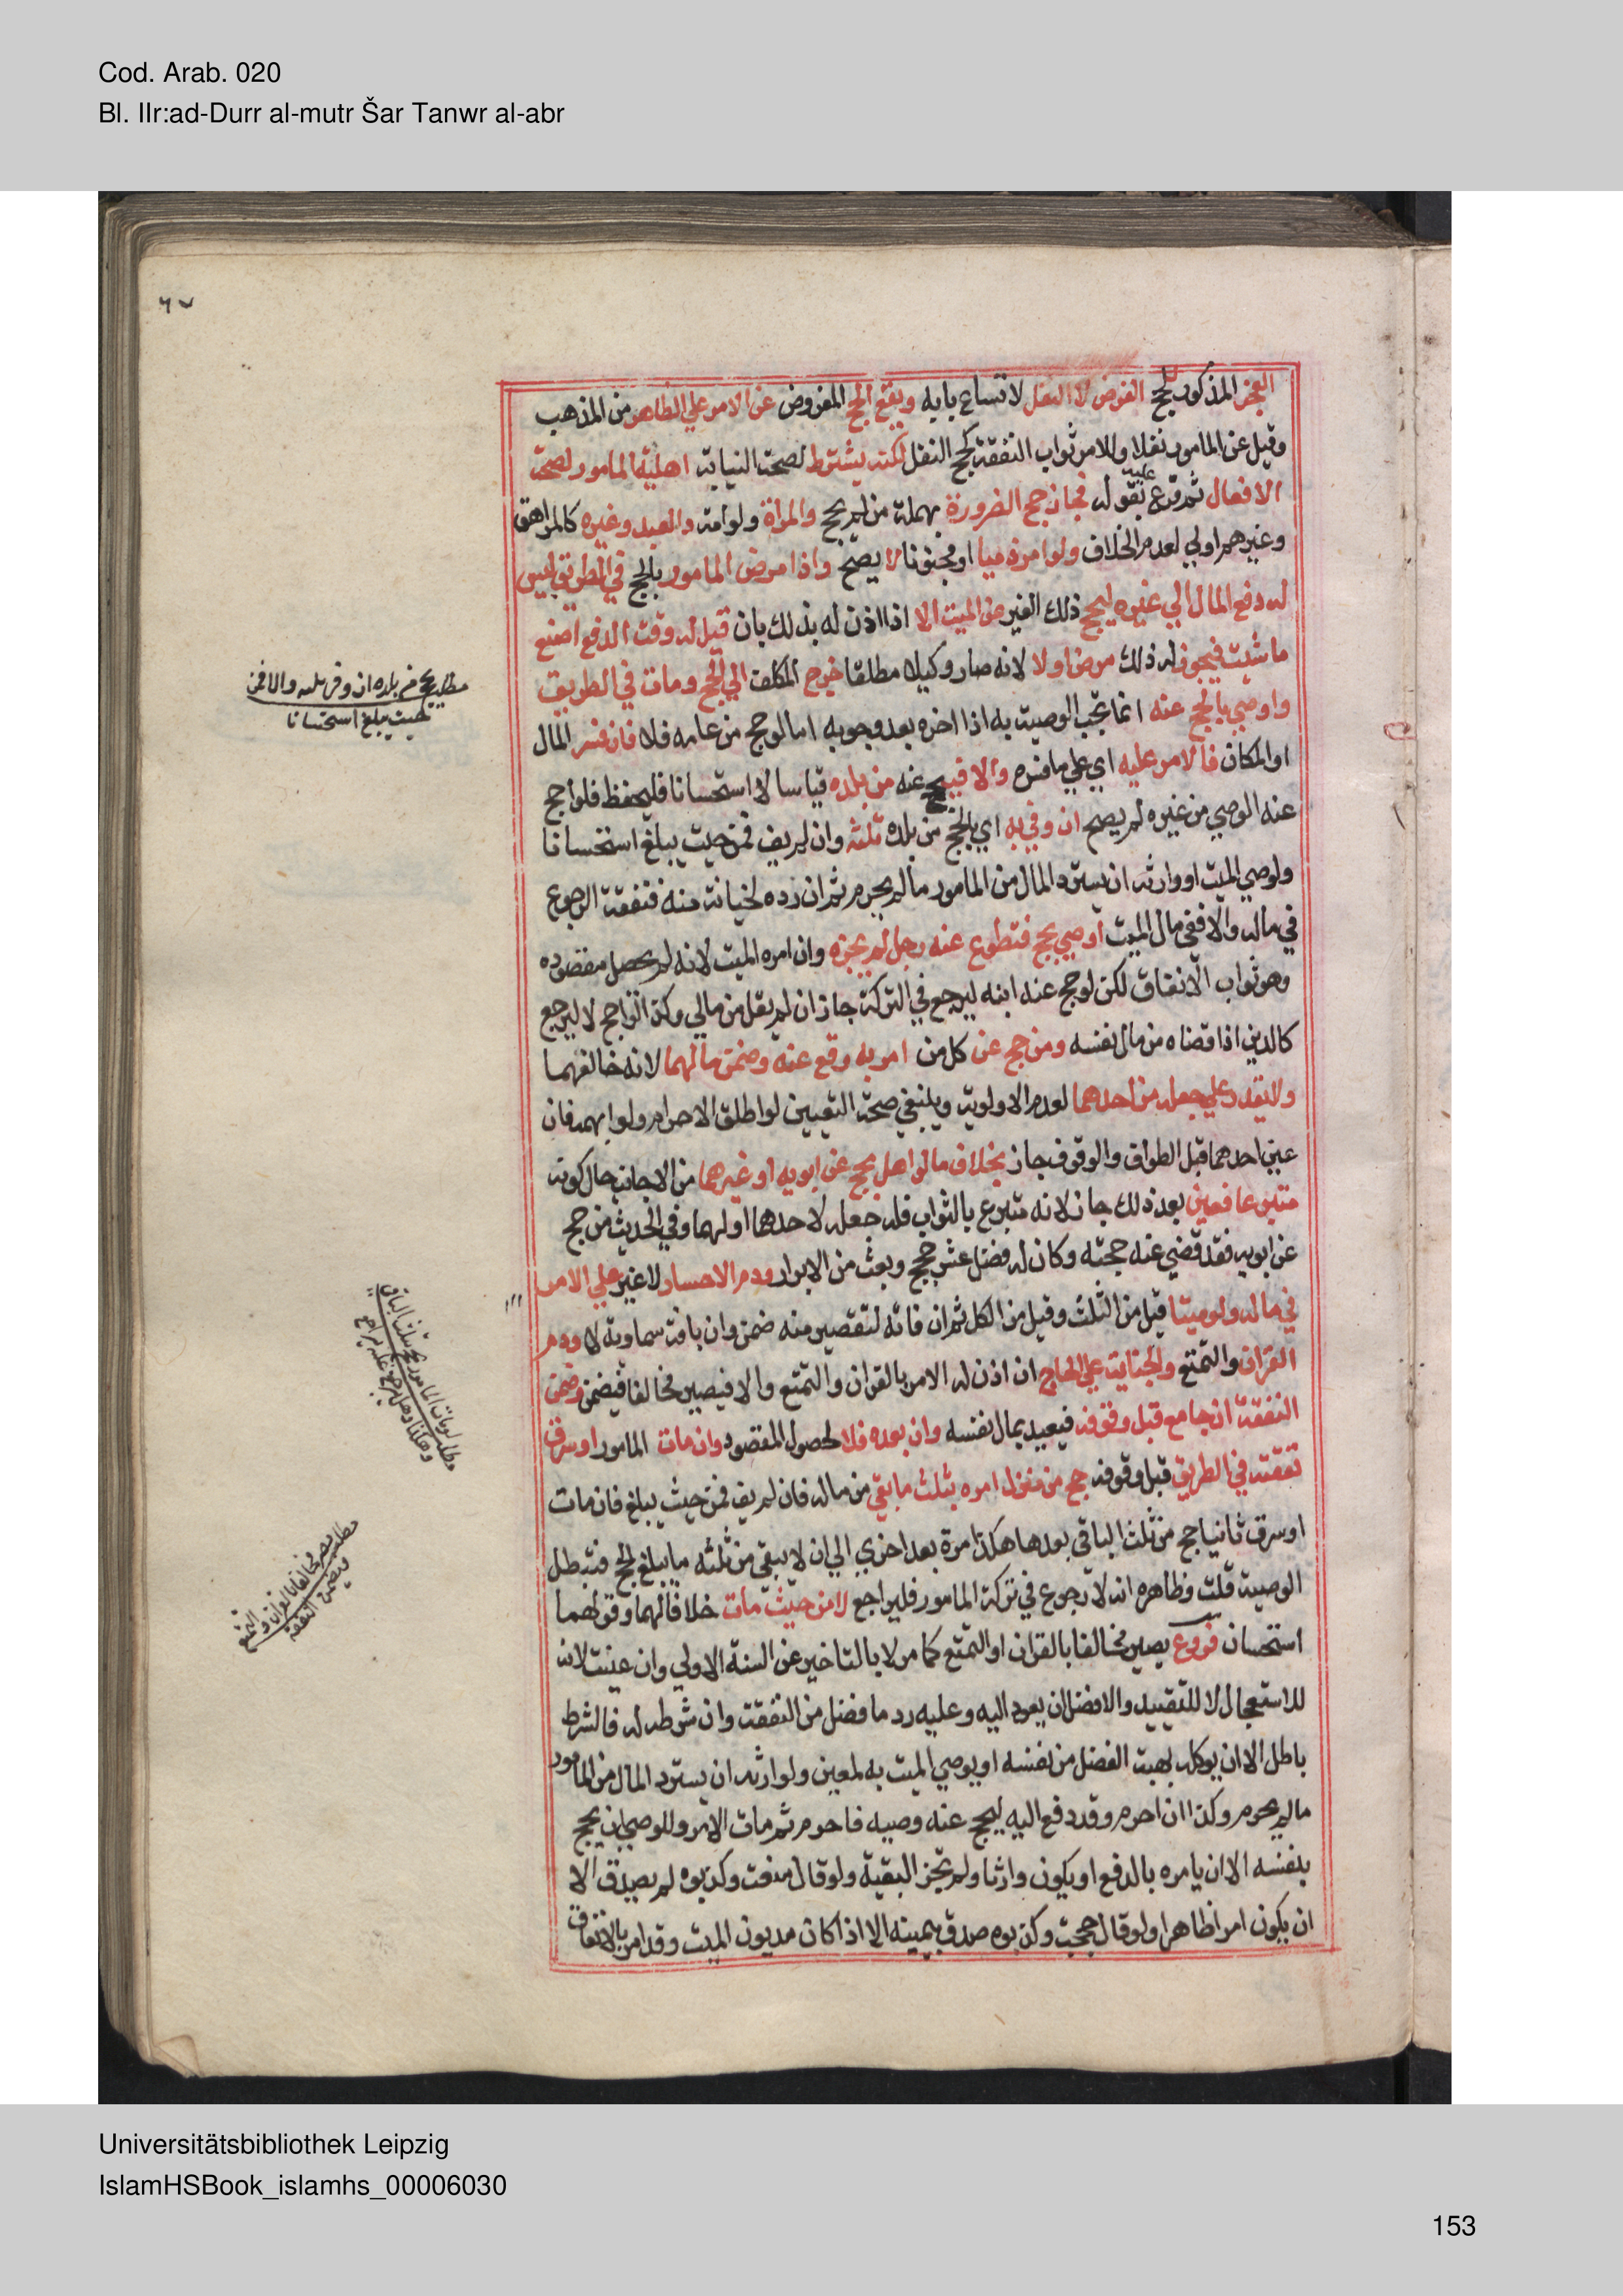 Cod. Arab. 020
Bl. IIr:ad-Durr al-mutr Šar Tanwr al-abr
٦٧
العجز المذكور لحج الفرض لا النفل لاتساع بابه ويقع الحج المفروض عن الامر علي الظاهر من المذهب
وقيل عن المامور نفلا وللامر ثواب النفقة كحج النفل لكنه يشترط لصحة النيابة اهلية المامور لصحة
الافعال ثم فرع عليه بقوله فجاز حج الضرورة بمهملة من لم يحج والمراة ولو امة والعبد وغيره كالمراهق
وغيرهم اولي لعدم الخلاف ولو امر ذميا او مجنونا لا يصح واذا مرض المامور بالحج في الطريق ليس
له دفع المال الي غيره ليحج ذلك الغير عن الميت الا اذا اذن له بذلك بان قيل له وقت الدفع اصنع
ما شيت فيجوز له ذلك مرض اولا لانه صار وكيلا مطلقا خرج المكلف الي الحج ومات في الطريق
واوصي بالحج عنه انما تجب الوصية به اذا اخره بعد وجوبه اما لو حج من عامه فلا فان فسر المال
او المكان فالامر عليه اي علي ما فسره والا فيحج عنه من بلده قياسا لا استحسانا فليحفظ فلو احج
عنه الوصي من غيره لم يصح ان وفي به اي بالحج من بلده ثلثه وان لم يف فمن حيث يبلغ استحسانا
ولوصي الميت او وارثه ان يسترد المال من المامور مالم يحرم ثم ان رده لخيانة منه فنفقة الرجوع
في ماله والا ففي مال الميت اوصي بحج فتطوع عنه رجل لم يجزه وان امره الميت لانه لم يحصل مقصوده
وهو ثواب الانفاق لكن لو حج عنه ابنه ليرجع في التركة جاز ان لم يقل من مالي وكذا لو احج لا ليرجع
كالدين اذا قضاه من مال نفسه ومن حج عن كل من امر به وقع عنه وضمن مالهما لانه خالفهما
ولا يقدر علي جعله من احدهما لعدم الاولوية وينبغي صحة التعيين لو اطلق الاحرام ولو ابهمه فان
عين احدهما قبل الطواف والوقوف جاز بخلاف مالو اهل بحج عن ابويه او غيرهما من الاجانب حال كونه
متبرعا فعين بعد ذلك جاز لانه متبرع بالثواب فله جعله لاحدهما او لهما وفي الحديث من حج
عن ابويه فقد قضي عنه حجته وكان له فضل عشر حجج وبعث من الابرار ودم الاحسار لا غير علي الامر
في ماله ولو ميتا قيل من الثلث وقيل من الكل ثم ان فاته لتقصير منه ضمن وان بافة سماوية لا ودم
القران والتمتع والجناية علي الحاج ان اذن له الامر بالقران والتمتع والا فيصير مخالفا فيضمن وضمن
النفقة ان جامع قبل وقوفه فيعيد بمال نفسه وان بعده فلا لحصول المقصود وان مات المامور او سرق
نفقته في الطريق قبل وقوفه حج من منزل امره بثلث ما بقي من ماله فان لم يف فمن حيث يبلغ فان مات
او سرق ثانيا حج من ثلث الباقي بعدها هكذا مرة بعد اخري الي ان لا يبقي من ثلثه ما يبلغ الحج فتبطل
الوصية قلت وظاهره انه لا رجوع في تركة المامور فليراجع لا من حيث مات خلافا لهما وقولهما
استحسان فروع يصير مخالفا بالقران او التمتع كما مر لا بالتاخير عن السنة الاولي وان عينت لانه
للاستعجال لا للتقييد والافضل ان يعود اليه وعليه رد ما فضل من النفقة وان شرطه له فالشرط
باطل الا ان يوكله بهبة الفضل من نفسه او يوصي الميت به لمعين ولوارثه ان يسترد المال من المامور
مالم يحرم وكذا ان احرم وقد دفع اليه ليحج عنه وصيه فاحرم ثم مات الامر وللوصي ان يحج
بنفسه الا ان يامره بالدفع او يكون وارثا ولم تجز البقية ولو قال منعت وكذبوه لم يصدق الا
ان يكون امرا ظاهرا ولو قال حججت وكذبوه صدق بيمينه الا اذا كان مديون الميت وقد امر بالانفاق
مطلب يحج من بلده ان وفي ثلثه والا فمن
حيث يبلغ استحسانا
مطلب لو مات المامور يحج بثلث الباقي
مطلب يصير مخالفا بالقران والتمتع
ويضمن النفقة
Universitätsbibliothek Leipzig
IslamHSBook_islamhs_00006030
153